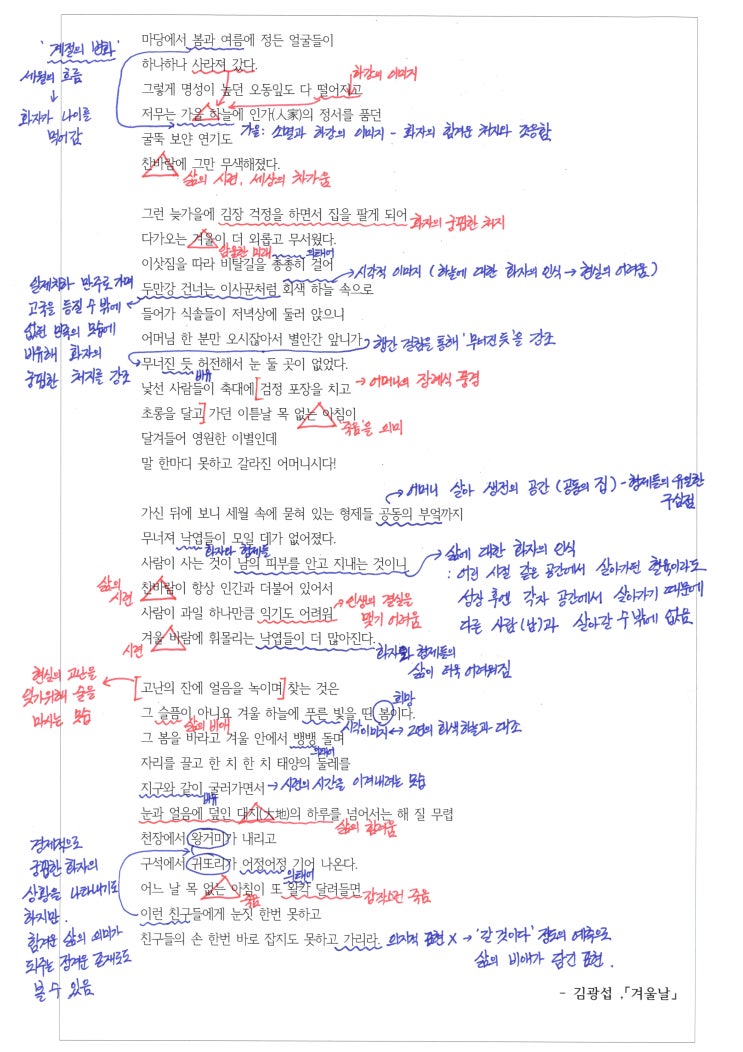 마당에서 봄과 여름에 정든 얼굴들이
'계절의 변화'
하나하나 사라져 갔다.
세월의 흐름
↓
화자가 나이를
먹어감
하강의 이미지
그렇게 명성이 높던 오동잎도 다 떨어지고
저무는 가을 하늘에 인가(人家)의 정서를 품던
가을: 소멸과 하강의 이미지 - 화자의 힘겨운 처지와 조응함
굴뚝 보얀 연기도
찬바람에 그만 무색해졌다.
삶의 시련, 세상의 차가움
그런 늦가을에 김장 걱정을 하면서 집을 팔게 되어
화자의 궁핍한 처지
다가오는 겨울이 더 외롭고 무서웠다.
암울한 미래
의태어
이삿짐을 따라 비탈길을 총총히 걸어
시각적 이미지 (하늘에 대한 화자의 인식 → 현실의 어려움)
두만강 건너는 이사꾼처럼 회색 하늘 속으로
일제치하 만주로 가며
고국을 등질 수 밖에
없던 민족의 모습에
비유해 화자의
궁핍한 처지를 강조
들어가 식솔들이 저녁상에 둘러 앉으니
어머님 한 분만 오시잖아서 별안간 앞니가
행간 걸침을 통해 '무너진 듯'을 강조
무너진 듯 허전해서 눈 둘 곳이 없었다.
비유
낯선 사람들이 축대에 검정 포장을 치고
→ 어머니의 장례식 풍경
초롱을 달고 가던 이튿날 목 없는 아침이
'죽음'을 의미
달겨들어 영원한 이별인데
말 한마디 못하고 갈라진 어머니시다!
어머니 살아 생전의 공간 (공동의 집) - 형제들의 유일한
구심점
가신 뒤에 보니 세월 속에 묻혀 있는 형제들 공동의 부엌까지
무너져 낙엽들이 모일 데가 없어졌다.
화자와 형제들
사람이 사는 것이 남의 피부를 안고 지내는 것이니
삶에 대한 화자의 인식
: 어린 시절 같은 공간에서 살아가던 혈육이라도
성장 후엔 각자 공간에서 살아가기 때문에
다른 사람(남)과 살아갈 수 밖에 없음
찬바람이 항상 인간과 더불어 있어서
삶의
시련
사람이 과일 하나만큼 익기도 어려워
→ 인생의 결실을
맺기 어려움
겨울 바람에 휘몰리는 낙엽들이 더 많아진다.
시련
화자와 형제들의
삶이 더욱 어려워짐
현실의 고난을
잊기위해 술을
마시는 모습
고난의 잔에 얼음을 녹이며 찾는 것은
희망
그 슬픔이 아니요 겨울 하늘에 푸른 빛을 띤 봄이다.
삶의 비애
시각이미지 ↔ 2연의 회색하늘과 대조
그 봄을 바라고 겨울 안에서 뱅뱅 돌며
의태어
자리를 끌고 한 치 한 치 태양의 둘레를
지구와 같이 굴러가면서
→ 시련의 시간을 이겨내려는 모습
비유
눈과 얼음에 덮인 대지(大地)의 하루를 넘어서는 해 질 무렵
삶의 힘겨움
천장에서 왕거미가 내리고
구석에서 귀또리가 어정어정 기어 나온다.
의태어
경제적으로
궁핍한 화자의
상황을 나타내기도
하지만,
힘겨운 삶의 의미가
되주는 정겨운 존재로도
볼 수 있음
어느 날 목 없는 아침이 또 왈칵 달려들면
죽음
갑작스런 죽음
이런 친구들에게 눈짓 한번 못하고
친구들의 손 한번 바로 잡지도 못하고 가리라.
의지적 표현 X → '갈 것이다' 정도의 예측으로
삶의 비애가 담긴 표현.
- 김광섭, 「겨울날」